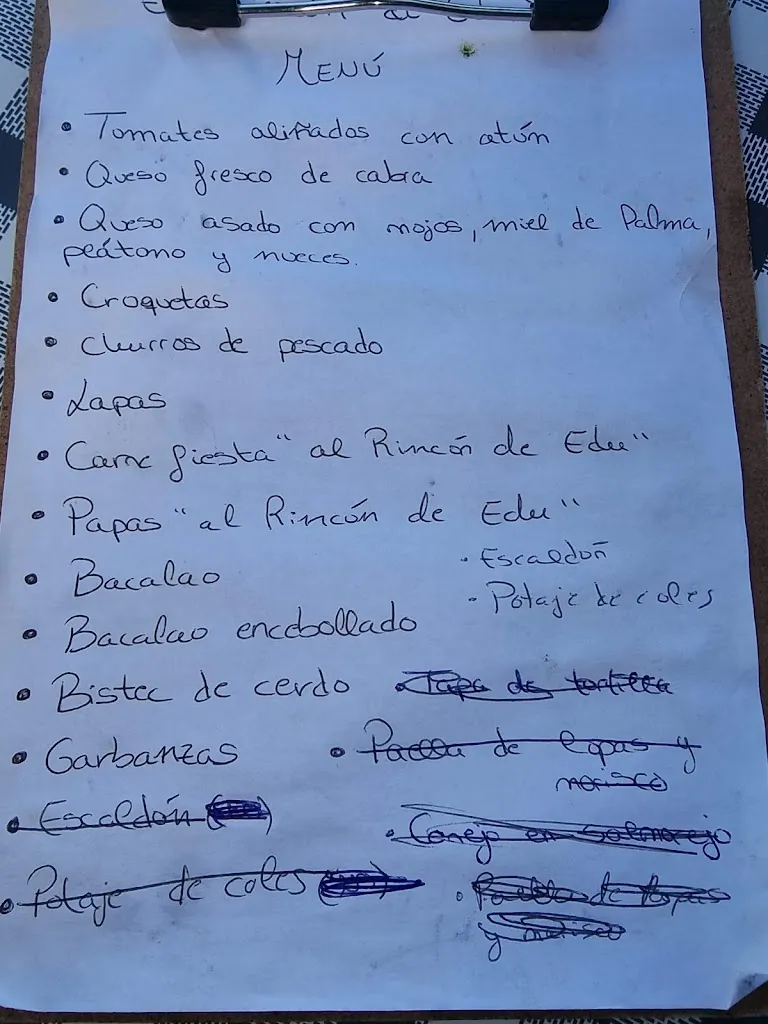 MENÚ
• Tomates aliñados con atún
• Queso fresco de cabra
• Queso asado con mojos, miel de Palma,
peátono y nueces.
• Croquetas
• Churros de pescado
• Lapas
• Carne fiesta "al Rincón de Edu"
• Papas "al Rincón de Edu"
• Bacalao
• Escaldoñ
• Potaje de coles
• Bacalao encebollado
• Bistec de cerdo
• Tapa de tortilla
• Garbanzas
• Paella de lapas y
marisco
• Escaldón
• Conejo en salmorejo
• Potaje de coles
• Paella de lapas
y marisco